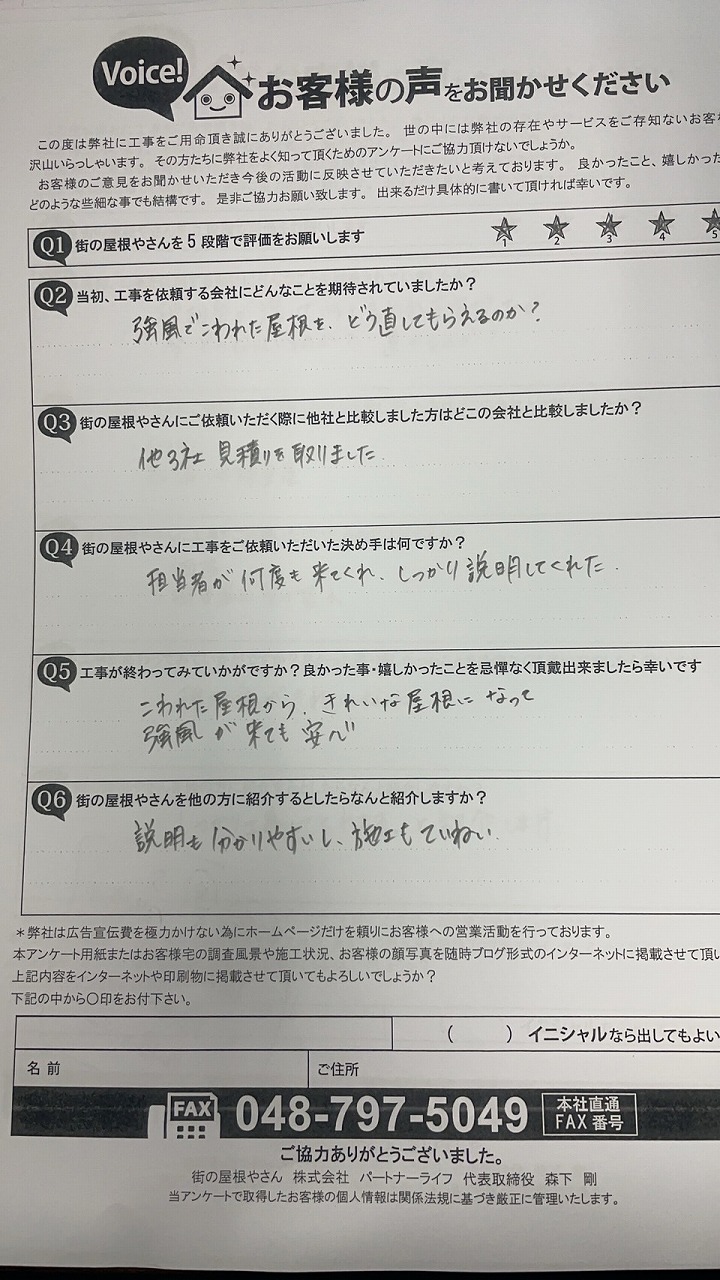 Voice! お客様の声をお聞かせください
この度は弊社に工事をご用命頂き誠にありがとうございました。 世の中には弊社の存在やサービスをご存知ないお客
沢山いらっしゃいます。 その方たちに弊社をよく知って頂くためのアンケートにご協力頂けないでしょうか。
お客様のご意見をお聞かせいただき今後の活動に反映させていただきたいと考えております。 良かったこと、嬉しかった
どのような些細な事でも結構です。 是非ご協力お願い致します。 出来るだけ具体的に書いて頂ければ幸いです。
Q1 街の屋根やさんを 5 段階で評価をお願いします
1 2 3 4 5
Q2 当初、工事を依頼する会社にどんなことを期待されていましたか？
強風でこわれた屋根を、どう直してもらえるのか？
Q3 街の屋根やさんにご依頼いただく際に他社と比較しました方はどこの会社と比較しましたか？
他3社 見積りを取りました
Q4 街の屋根やさんに工事をご依頼いただいた決め手は何ですか？
担当者が何度も来てくれ、しっかり説明してくれた.
Q5 工事が終わってみていかがですか？良かった事・嬉しかったことを忌憚なく頂戴出来ましたら幸いです
こわれた屋根から、きれいな屋根になって
強風が来ても安心
Q6 街の屋根やさんを他の方に紹介するとしたらなんと紹介しますか？
説明も分かりやすいし、施工もていねい
＊弊社は広告宣伝費を極力かけない為にホームページだけを頼りにお客様への営業活動を行っております。
本アンケート用紙またはお客様宅の調査風景や施工状況、お客様の顔写真を随時ブログ形式のインターネットに掲載させて頂い
上記内容をインターネットや印刷物に掲載させて頂いてもよろしいでしょうか？
下記の中から〇印をお付下さい。
（　　　） イニシャルなら出してもよい
名 前
ご住所
FAX 048-797-5049 本社直通
FAX 番号
ご協力ありがとうございました。
街の屋根やさん 株式会社 パートナーライフ 代表取締役 森下 剛
当アンケートで取得したお客様の個人情報は関係法規に基づき厳正に管理いたします。